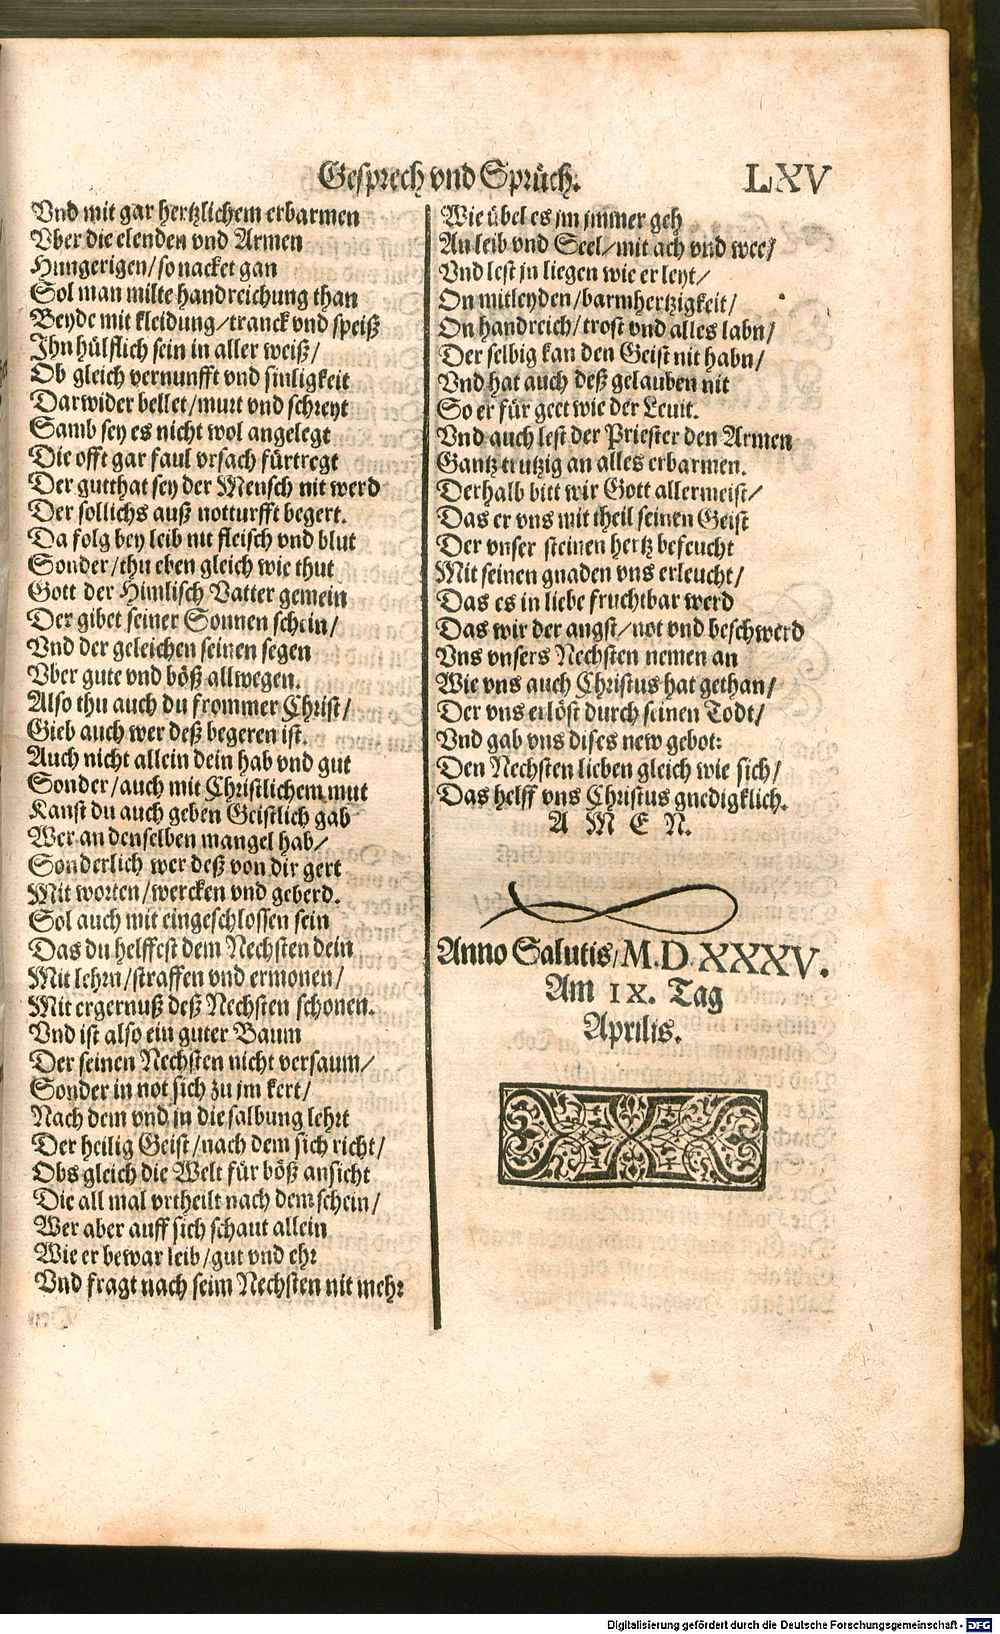 Gesprech vnd Sprüch.
LXV
Vnd mit gar hertzlichem erbarmen
Vber die elenden vnd Armen
Hungerigen/ so nacket gan
Sol man milte handreichung than
Beyde mit kleidung/ tranck vnd speiß
Ihn hülflich sein in aller weiß/
Ob gleich vernunfft vnd sinligkeit
Darwider bellet/ murt vnd schreyt
Samb sey es nicht wol angelegt
Die offt gar faul vrsach fürtregt
Der gutthat sey der Mensch nit werd
Der sollichs auß notturfft begert.
Da folg bey leib nit fleisch vnd blut
Sonder/ thu eben gleich wie thut
Gott der Himlisch Vatter gemein
Der gibet seiner Sonnen schein/
Vnd der geleichen seinen segen
Vber gute vnd böß allwegen.
Also thu auch du frommer Christ/
Gieb auch wer deß begeren ist.
Auch nicht allein dein hab vnd gut
Sonder/ auch mit Christlichem mut
Kanst du auch geben Geistlich gab
Wer an denselben mangel hab/
Sonderlich wer deß von dir gert
Mit worten/ wercken vnd geberd.
Sol auch mit eingeschlossen sein
Das du helffest dem Nechsten dein
Mit lehrn/ straffen vnd ermonen/
Mit ergernuß deß Nechsten schonen.
Vnd ist also ein guter Baum
Der seinen Nechsten nicht versaum/
Sonder in not sich zu jm kert/
Nach dem vnd in die salbung lehrt
Der heilig Geist/ nach dem sich richt/
Obs gleich die Welt für böß ansicht
Die all mal vrtheilt nach dem schein/
Wer aber auff sich schaut allein
Wie er bewar leib/ gut vnd ehr
Vnd fragt nach seim Nechsten nit mehr
Wie übel es jm jmmer geh
An leib vnd Seel/ mit ach vnd wee/
Vnd lest jn liegen wie er leyt/
On mitleyden/ barmhertzigkeit/
On handreich/ trost vnd alles labn/
Der selbig kan den Geist nit habn/
Vnd hat auch deß gelauben nit
So er für geet wie der Leuit.
Vnd auch lest der Priester den Armen
Gantz trutzig an alles erbarmen.
Derhalb bitt wir Gott allermeist/
Das er vns mit theil seinen Geist
Der vnser steinen hertz befeucht
Mit seinen gnaden vns erleucht/
Das es in liebe fruchtbar werd
Das wir der angst/ not vnd beschwerd
Vns vnsers Nechsten nemen an
Wie vns auch Christus hat gethan/
Der vns erlöst durch seinen Todt/
Vnd gab vns dises new gebot:
Den Nechsten lieben gleich wie sich/
Das helff vns Christus gnedigklich.
A M E N.
Anno Salutis, M.D.XXXV.
Am IX. Tag
Aprilis.
Digitalisierung gefördert durch die Deutsche Forschungsgemeinschaft - DFG